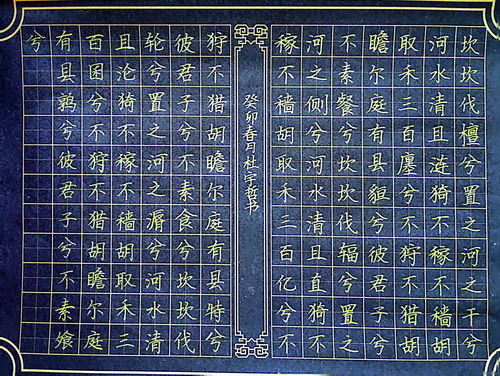 坎坎伐檀兮置之河之干兮
河水清且涟猗不稼不穑胡
取禾三百廛兮不狩不猎胡
瞻尔庭有县貆兮彼君子兮
不素餐兮坎坎伐辐兮置之
河之侧兮河水清且直猗不
稼不穑胡取禾三百亿兮不
癸卯春月杜宇哲书
狩不猎胡瞻尔庭有县特兮
彼君子兮不素食兮坎坎伐
轮兮置之河之漘兮河水清
且沦猗不稼不穑胡取禾三
百囷兮不狩不猎胡瞻尔庭
有县鹑兮彼君子兮不素飧
兮